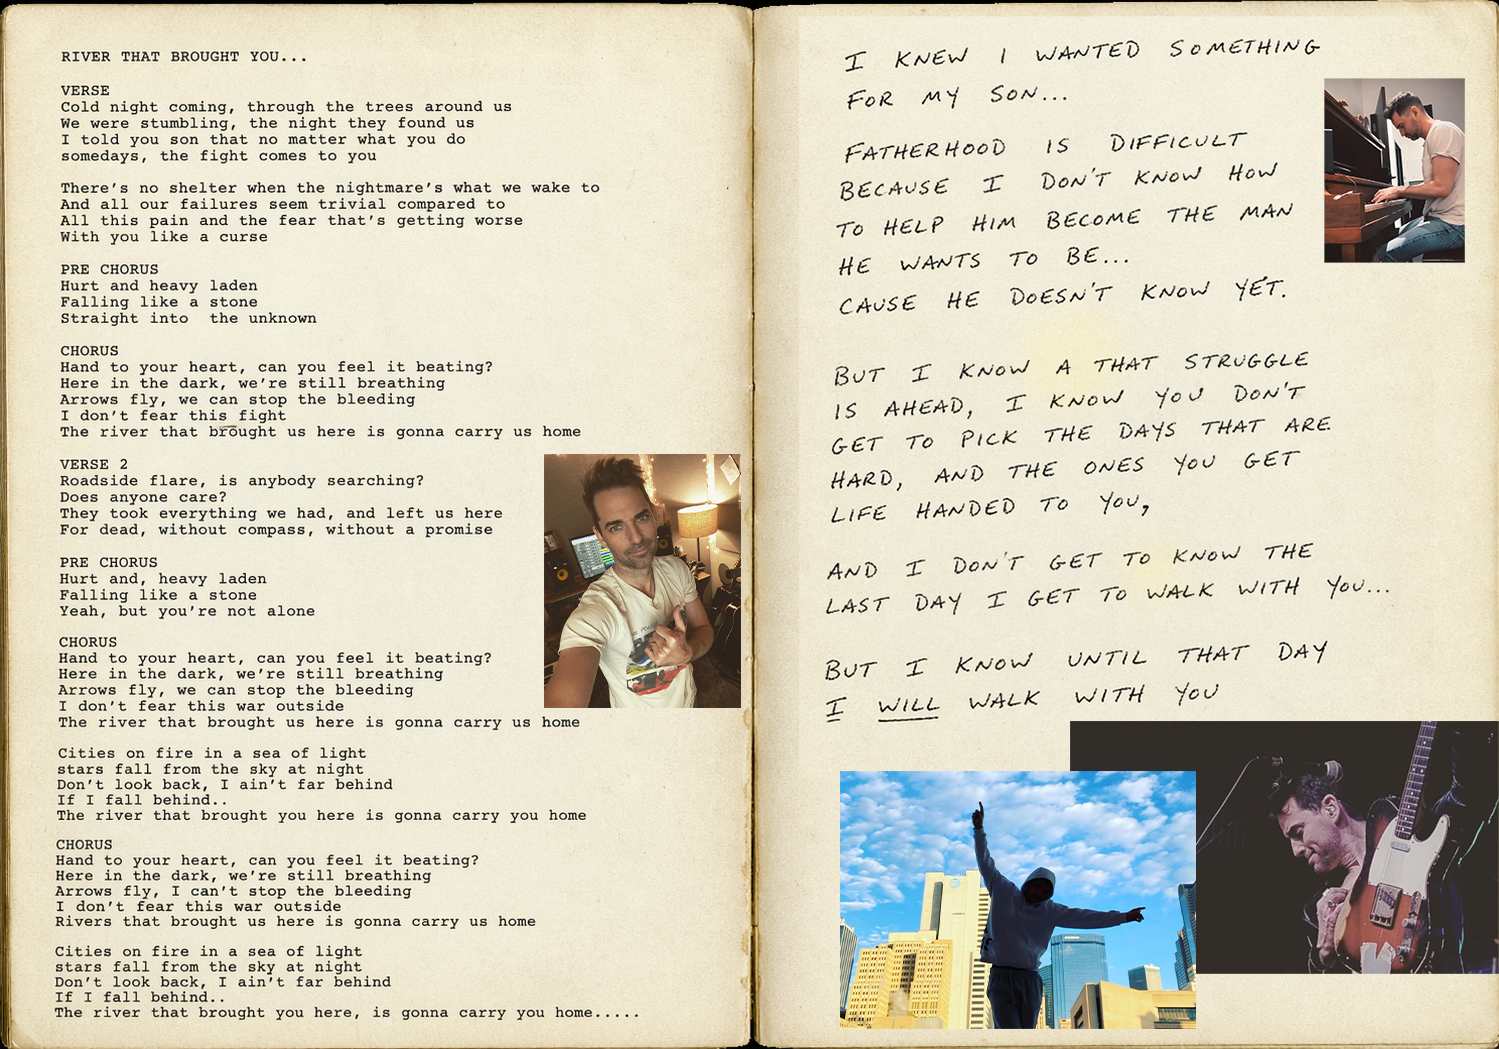 RIVER THAT BROUGHT YOU...
VERSE
Cold night coming, through the trees around us
We were stumbling, the night they found us
I told you son that no matter what you do
somedays, the fight comes to you
There's no shelter when the nightmare's what we wake to
And all our failures seem trivial compared to
All this pain and the fear that's getting worse
With you like a curse
PRE CHORUS
Hurt and heavy laden
Falling like a stone
Straight into  the unknown
CHORUS
Hand to your heart, can you feel it beating?
Here in the dark, we're still breathing
Arrows fly, we can stop the bleeding
I don't fear this fight
The river that brought us here is gonna carry us home
VERSE 2
Roadside flare, is anybody searching?
Does anyone care?
They took everything we had, and left us here
For dead, without compass, without a promise
PRE CHORUS
Hurt and, heavy laden
Falling like a stone
Yeah, but you're not alone
CHORUS
Hand to your heart, can you feel it beating?
Here in the dark, we're still breathing
Arrows fly, we can stop the bleeding
I don't fear this war outside
The river that brought us here is gonna carry us home
Cities on fire in a sea of light
stars fall from the sky at night
Don't look back, I ain't far behind
If I fall behind..
The river that brought you here is gonna carry you home
CHORUS
Hand to your heart, can you feel it beating?
Here in the dark, we're still breathing
Arrows fly, I can't stop the bleeding
I don't fear this war outside
Rivers that brought us here is gonna carry us home
Cities on fire in a sea of light
stars fall from the sky at night
Don't look back, I ain't far behind
If I fall behind..
The river that brought you here, is gonna carry you home.....
I KNEW I WANTED SOMETHING
FOR MY SON...
FATHERHOOD IS DIFFICULT
BECAUSE I DON'T KNOW HOW
TO HELP HIM BECOME THE MAN
HE WANTS TO BE...
CAUSE HE DOESN'T KNOW YET.
BUT I KNOW A THAT STRUGGLE
IS AHEAD, I KNOW YOU DON'T
GET TO PICK THE DAYS THAT ARE
HARD, AND THE ONES YOU GET
LIFE HANDED TO YOU,
AND I DON'T GET TO KNOW THE
LAST DAY I GET TO WALK WITH YOU...
BUT I KNOW UNTIL THAT DAY
I WILL WALK WITH YOU
AT&T